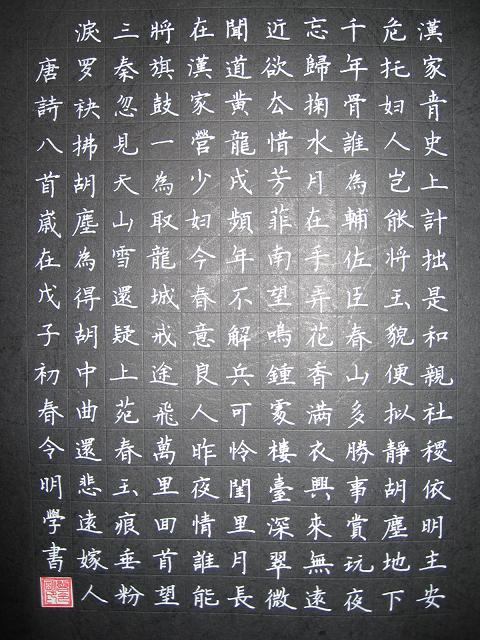 漢家青史上計拙是和親社稷依明主安
危托妇人岂能將玉貌便拟靜胡塵地下
千年骨誰為輔佐臣春山多勝事賞玩夜
忘歸掬水月在手弄花香满衣興來無遠
近欲去惜芳菲南望鳴鍾處樓臺深翠微
聞道黄龍戍頻年不解兵可怜閨里月長
在漢家營少妇今春意良人昨夜情誰能
將旗鼓一為取龍城戒途飛萬里回首望
三秦忽見天山雪還疑上苑春玉痕垂粉
淚罗袂拂胡塵為得胡中曲還悲遠嫁人
唐詩八首嵗在戊子初春令明學書